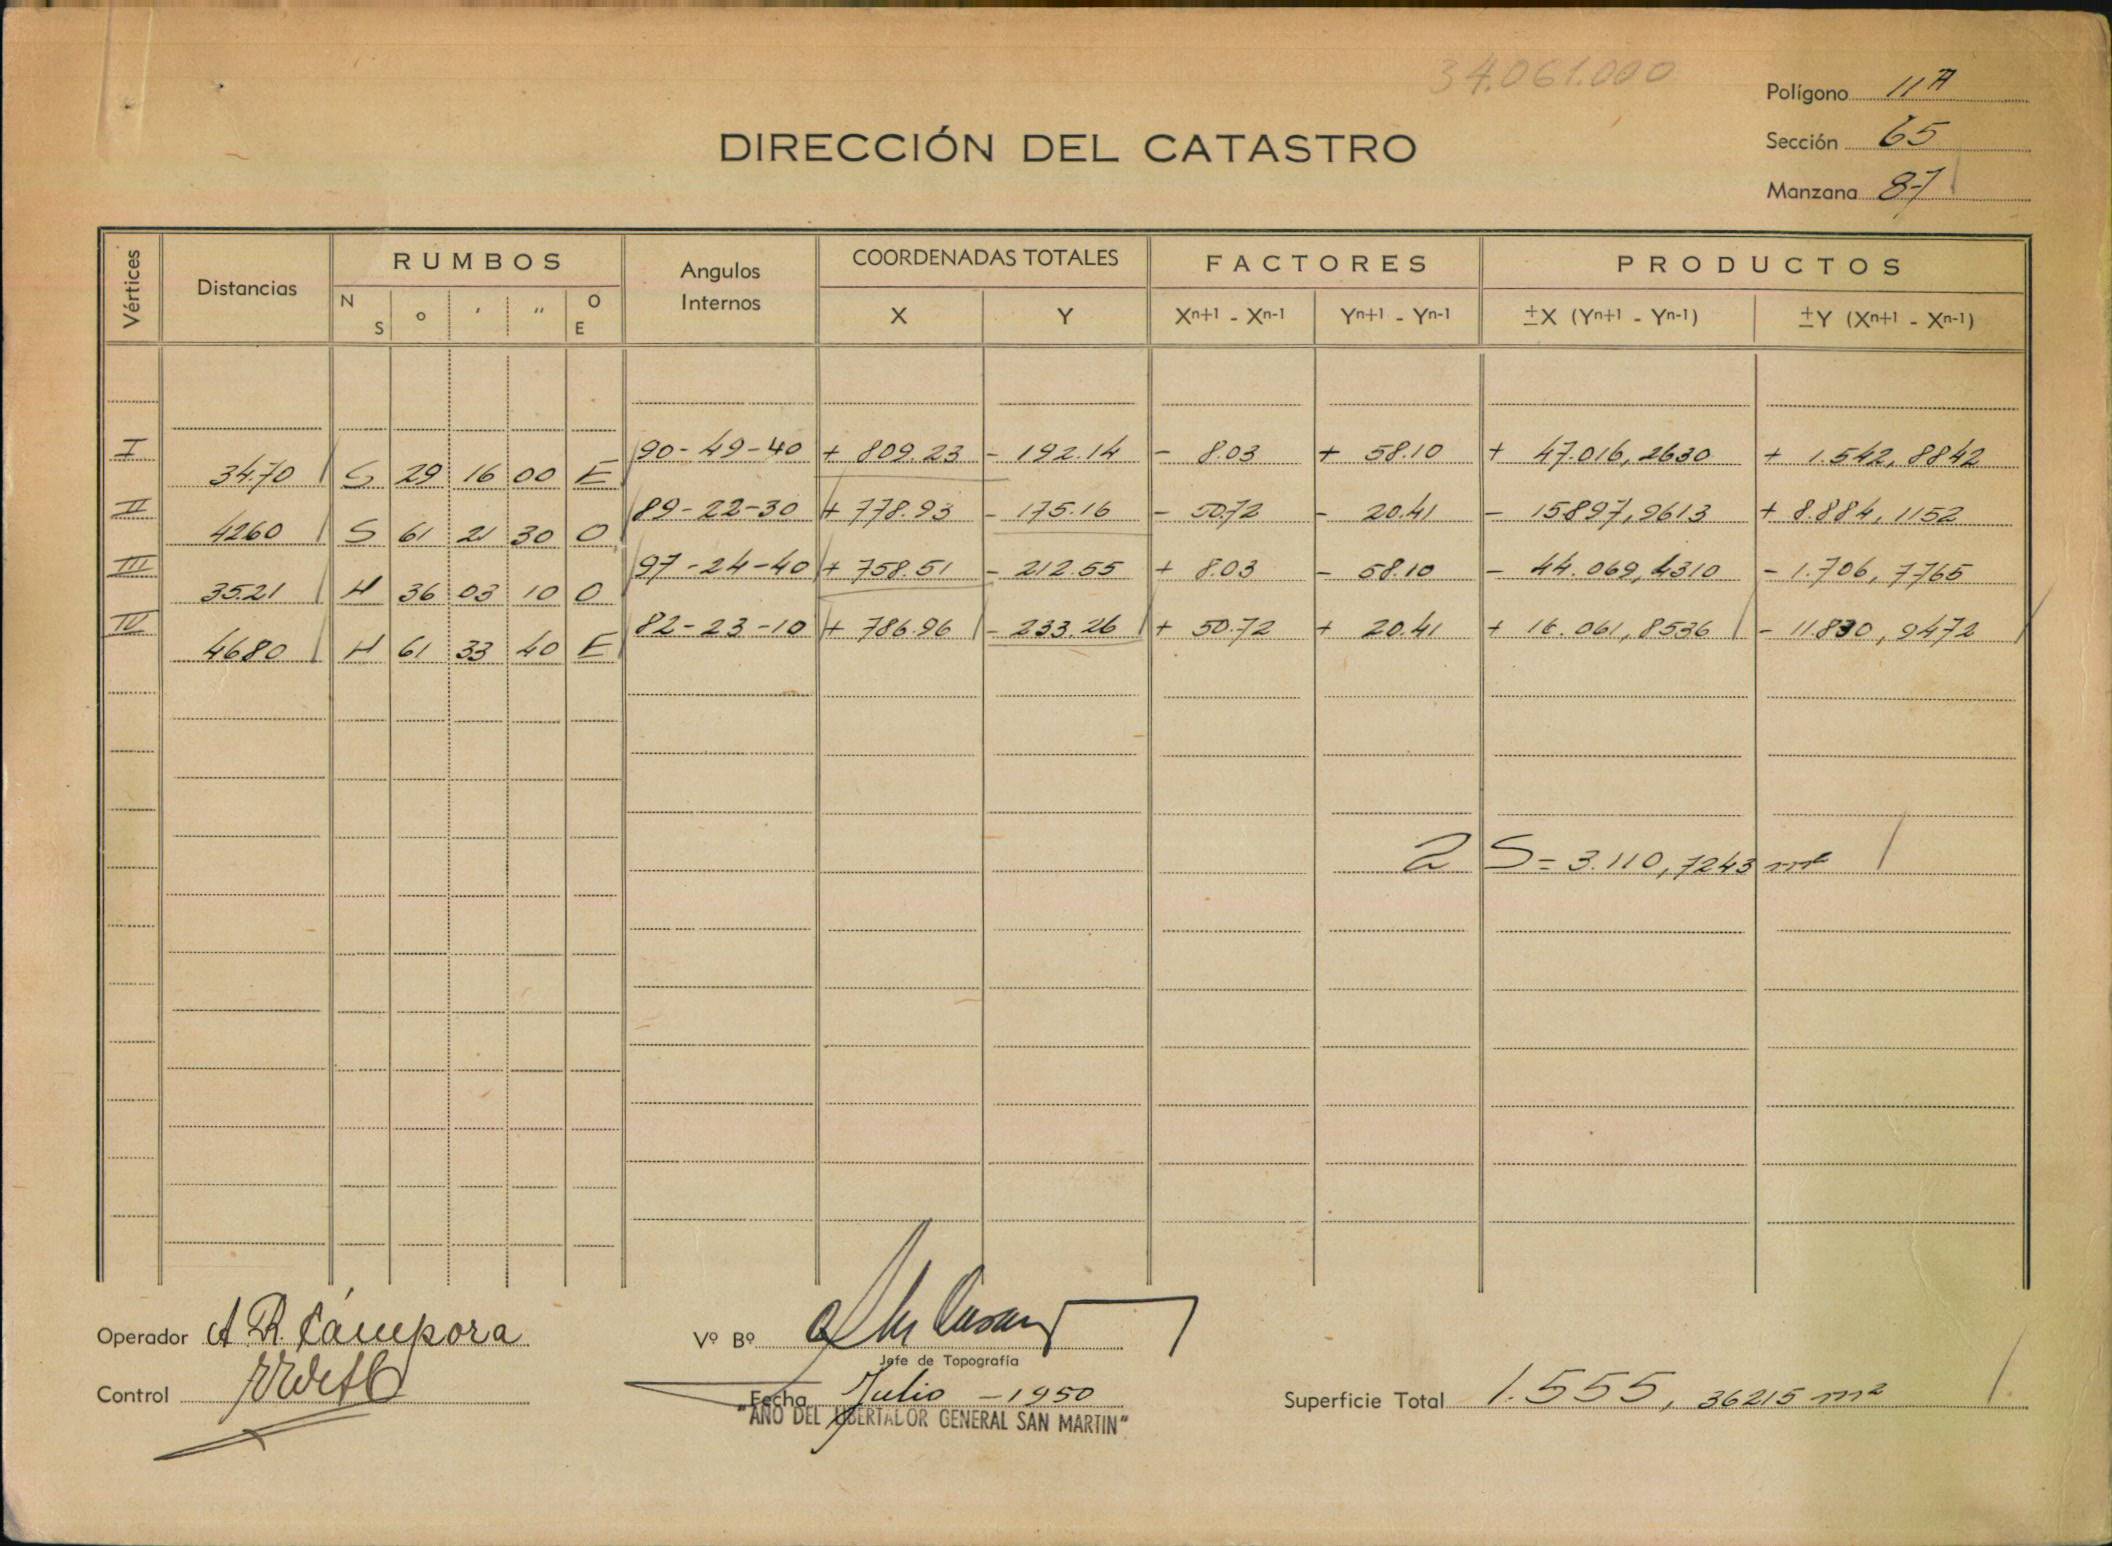 34.061.000
Polígono 11A
Sección 65
Manzana 87
DIRECCIÓN DEL CATASTRO
Vértices Distancias RUMBOS Angulos Internos COORDENADAS TOTALES FACTORES PRODUCTOS
N S o ′ ″ O E X Y Xn+1 - Xn-1 Yn+1 - Yn-1 ±X (Yn+1 - Yn-1) ±Y (Xn+1 - Xn-1)
I 90-49-40 + 809.23 - 192.14 - 8.03 + 58.10 + 47.016,2630 + 1.542,8842
34.70 S 29 16 00 E
II 89-22-30 + 778.93 - 175.16 - 50.72 - 20.41 - 15897,9613 + 8.884,1152
4260 S 61 21 30 O
III 97-24-40 + 758.51 - 212.55 + 8.03 - 58.10 - 44.069,4310 - 1.706,7765
35.21 H 36 03 10 O
IV 82-23-10 + 786.96 - 233.26 + 50.72 + 20.41 + 16.061,8536 - 11.830,9472
4680 H 61 33 40 E
2 S = 3.110,7243 m²
Operador A R. Cámpora
Vº Bº
Jefe de Topografía
Control
Fecha Julio - 1950
"AÑO DEL LIBERTADOR GENERAL SAN MARTIN"
Superficie Total 1.555, 36215 m²